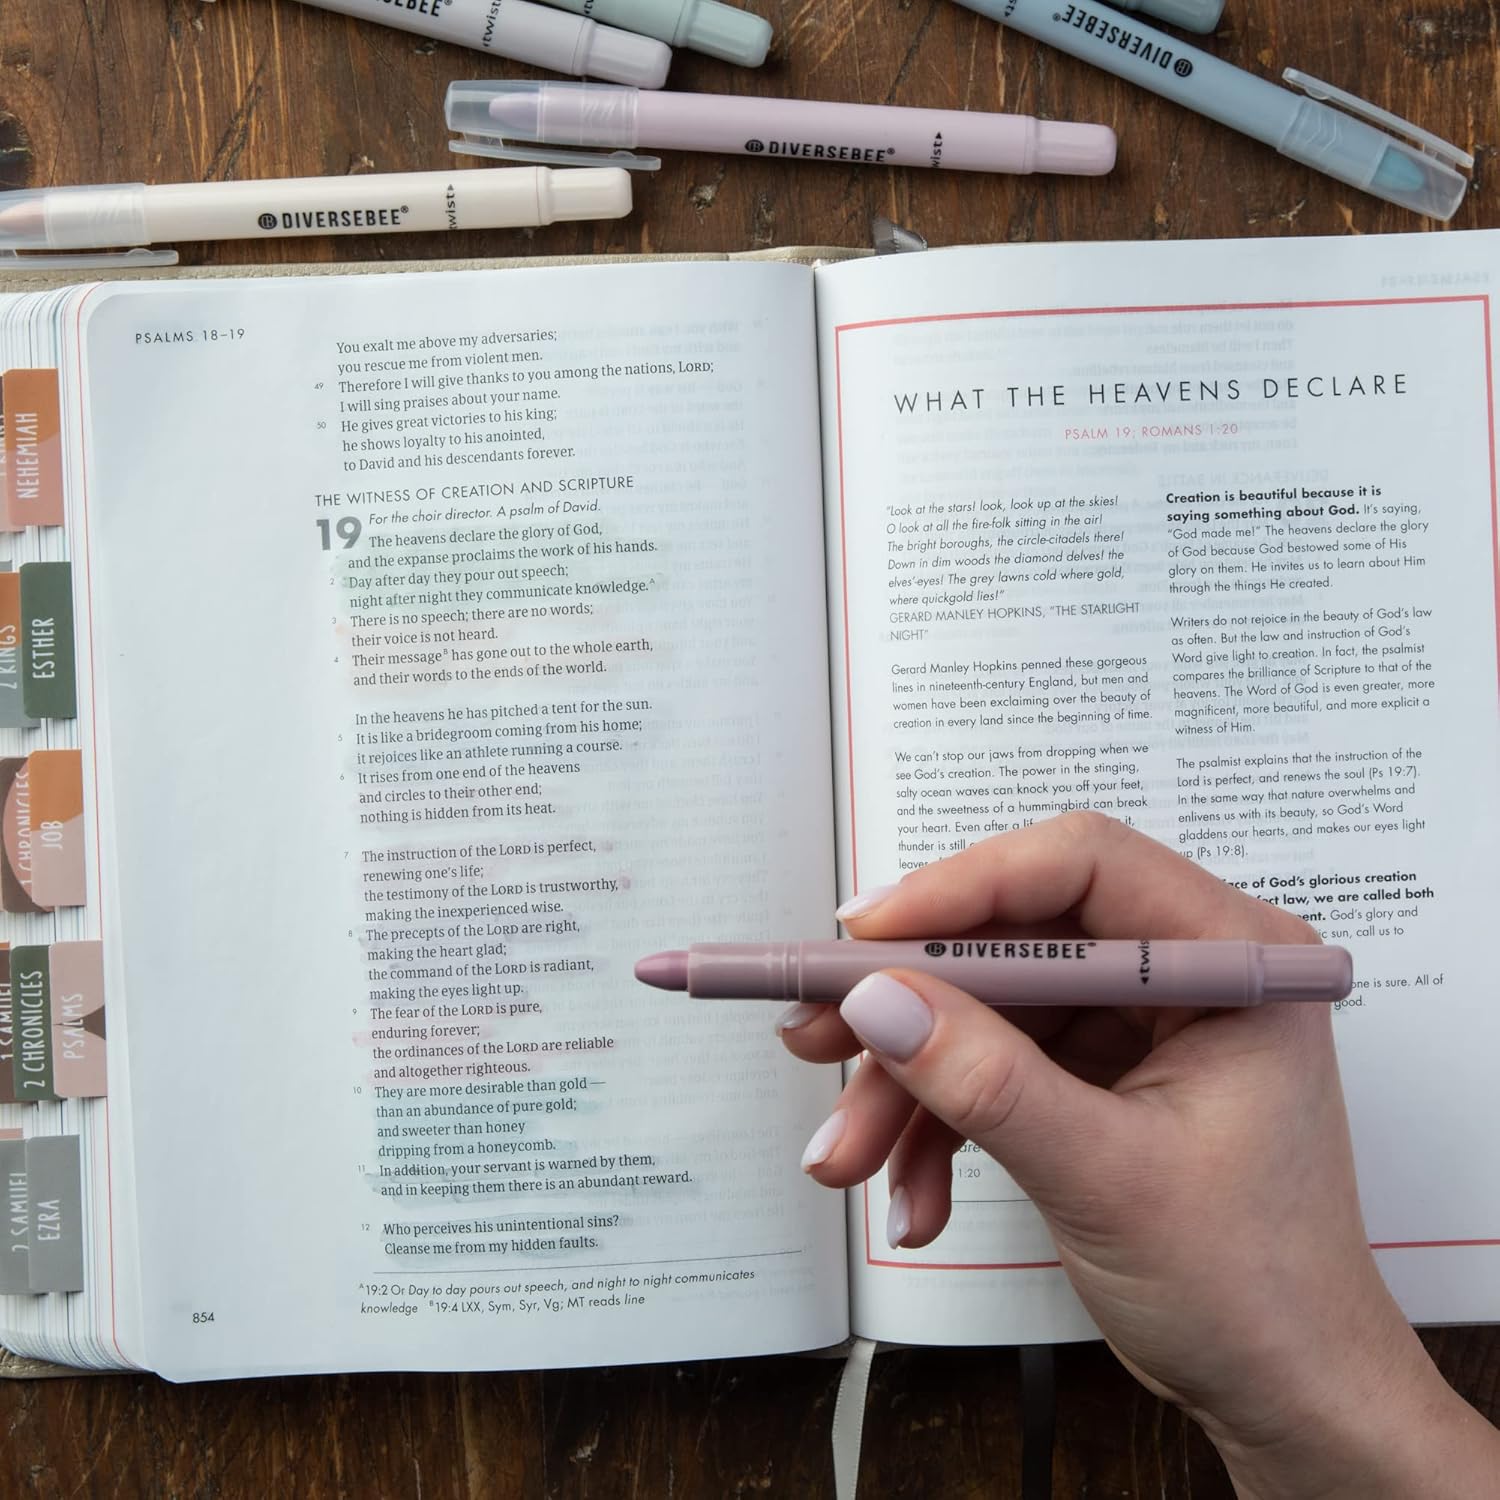 DIVERSEBEE®
twist
DIVERSEBEE®
DIVERSEBEE®
twist
DIVERSEBEE®
twist
PSALMS 18–19
You exalt me above my adversaries;
you rescue me from violent men.
49 Therefore I will give thanks to you among the nations, LORD;
I will sing praises about your name.
50 He gives great victories to his king;
he shows loyalty to his anointed,
to David and his descendants forever.
THE WITNESS OF CREATION AND SCRIPTURE
19 For the choir director. A psalm of David.
The heavens declare the glory of God,
and the expanse proclaims the work of his hands.
2 Day after day they pour out speech;
night after night they communicate knowledge.A
3 There is no speech; there are no words;
their voice is not heard.
4 Their messageB has gone out to the whole earth,
and their words to the ends of the world.
In the heavens he has pitched a tent for the sun.
5 It is like a bridegroom coming from his home;
it rejoices like an athlete running a course.
6 It rises from one end of the heavens
and circles to their other end;
nothing is hidden from its heat.
7 The instruction of the LORD is perfect,
renewing one's life;
the testimony of the LORD is trustworthy,
making the inexperienced wise.
8 The precepts of the LORD are right,
making the heart glad;
the command of the LORD is radiant,
making the eyes light up.
9 The fear of the LORD is pure,
enduring forever;
the ordinances of the LORD are reliable
and altogether righteous.
10 They are more desirable than gold —
than an abundance of pure gold;
and sweeter than honey
dripping from a honeycomb.
11 In addition, your servant is warned by them,
and in keeping them there is an abundant reward.
12 Who perceives his unintentional sins?
Cleanse me from my hidden faults.
A19:2 Or Day to day pours out speech, and night to night communicates
knowledge B19:4 LXX, Sym, Syr, Vg; MT reads line
854
NEHEMIAH
2 KINGS
ESTHER
1 CHRONICLES
JOB
1 SAMUEL
2 CHRONICLES
PSALMS
2 SAMUEL
EZRA
WHAT THE HEAVENS DECLARE
PSALM 19; ROMANS 1:20
"Look at the stars! look, look up at the skies!
O look at all the fire-folk sitting in the air!
The bright boroughs, the circle-citadels there!
Down in dim woods the diamond delves! the
elves'-eyes! The grey lawns cold where gold,
where quickgold lies!"
GERARD MANLEY HOPKINS, "THE STARLIGHT
NIGHT"
Gerard Manley Hopkins penned these gorgeous
lines in nineteenth-century England, but men and
women have been exclaiming over the beauty of
creation in every land since the beginning of time.
We can't stop our jaws from dropping when we
see God's creation. The power in the stinging,
salty ocean waves can knock you off your feet,
and the sweetness of a hummingbird can break
your heart. Even after a it,
thunder is still
1:20
Creation is beautiful because it is
saying something about God. It's saying,
"God made me!" The heavens declare the glory
of God because God bestowed some of His
glory on them. He invites us to learn about Him
through the things He created.
Writers do not rejoice in the beauty of God's law
as often. But the law and instruction of God's
Word give light to creation. In fact, the psalmist
compares the brilliance of Scripture to that of the
heavens. The Word of God is even greater, more
magnificent, more beautiful, and more explicit a
witness of Him.
The psalmist explains that the instruction of the
Lord is perfect, and renews the soul (Ps 19:7).
In the same way that nature overwhelms and
enlivens us with its beauty, so God's Word
gladdens our hearts, and makes our eyes light
up (Ps 19:8).
of God's glorious creation
law, we are called both
God's glory and
sun, call us to
one is sure. All of
good.
DIVERSEBEE®
twist